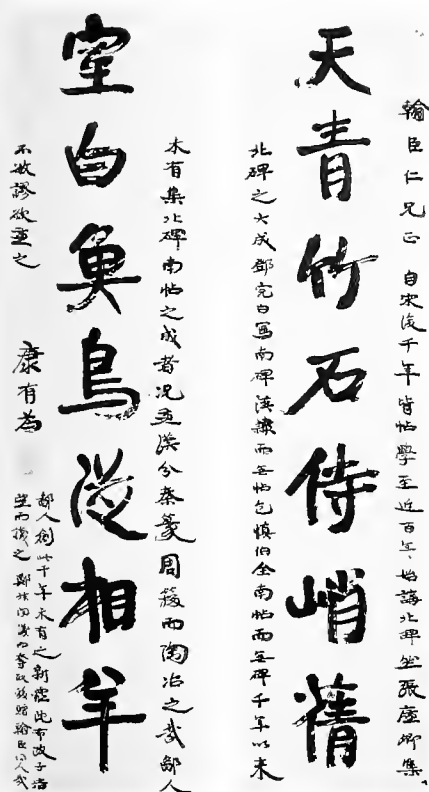 翰臣仁兄正 自宋後千年皆帖學至近百年始講北碑張廉卿集
天青竹石侍峭蒨
北碑之大成鄧完白寫南碑漢隸而無帖包慎伯全南帖而無碑千年以來
未有集北碑南帖之成者况兼漢分秦篆周籀而陶冶之哉鄙人
室白魚鳥從相羊
不敏謬欲兼之 康有為
鄙人創此千年未有之新體沈布政子培
望而識之鄭叔問識而奪取移贈翰臣同人哉